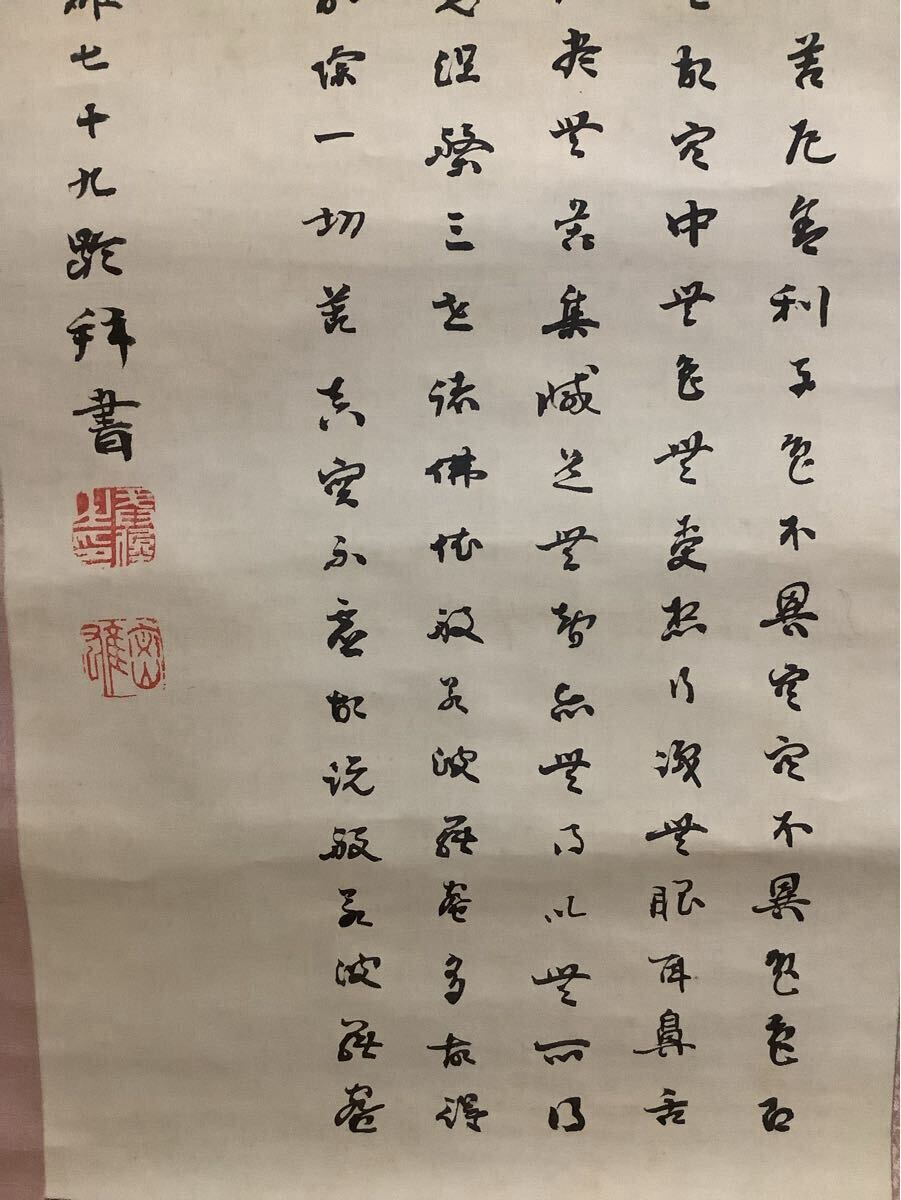 苦厄舎利子色不異空空不異色色即
故空中無色無受想行識無眼耳鼻舌
尽無苦集滅道無智亦無得以無所得
涅槃三世諸佛依般若波羅蜜多故得
能除一切苦真実不虚故説般若波羅蜜
雄七十九齢拝書